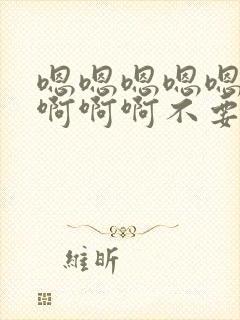 嗯嗯嗯嗯嗯
啊啊啊不要
維昕